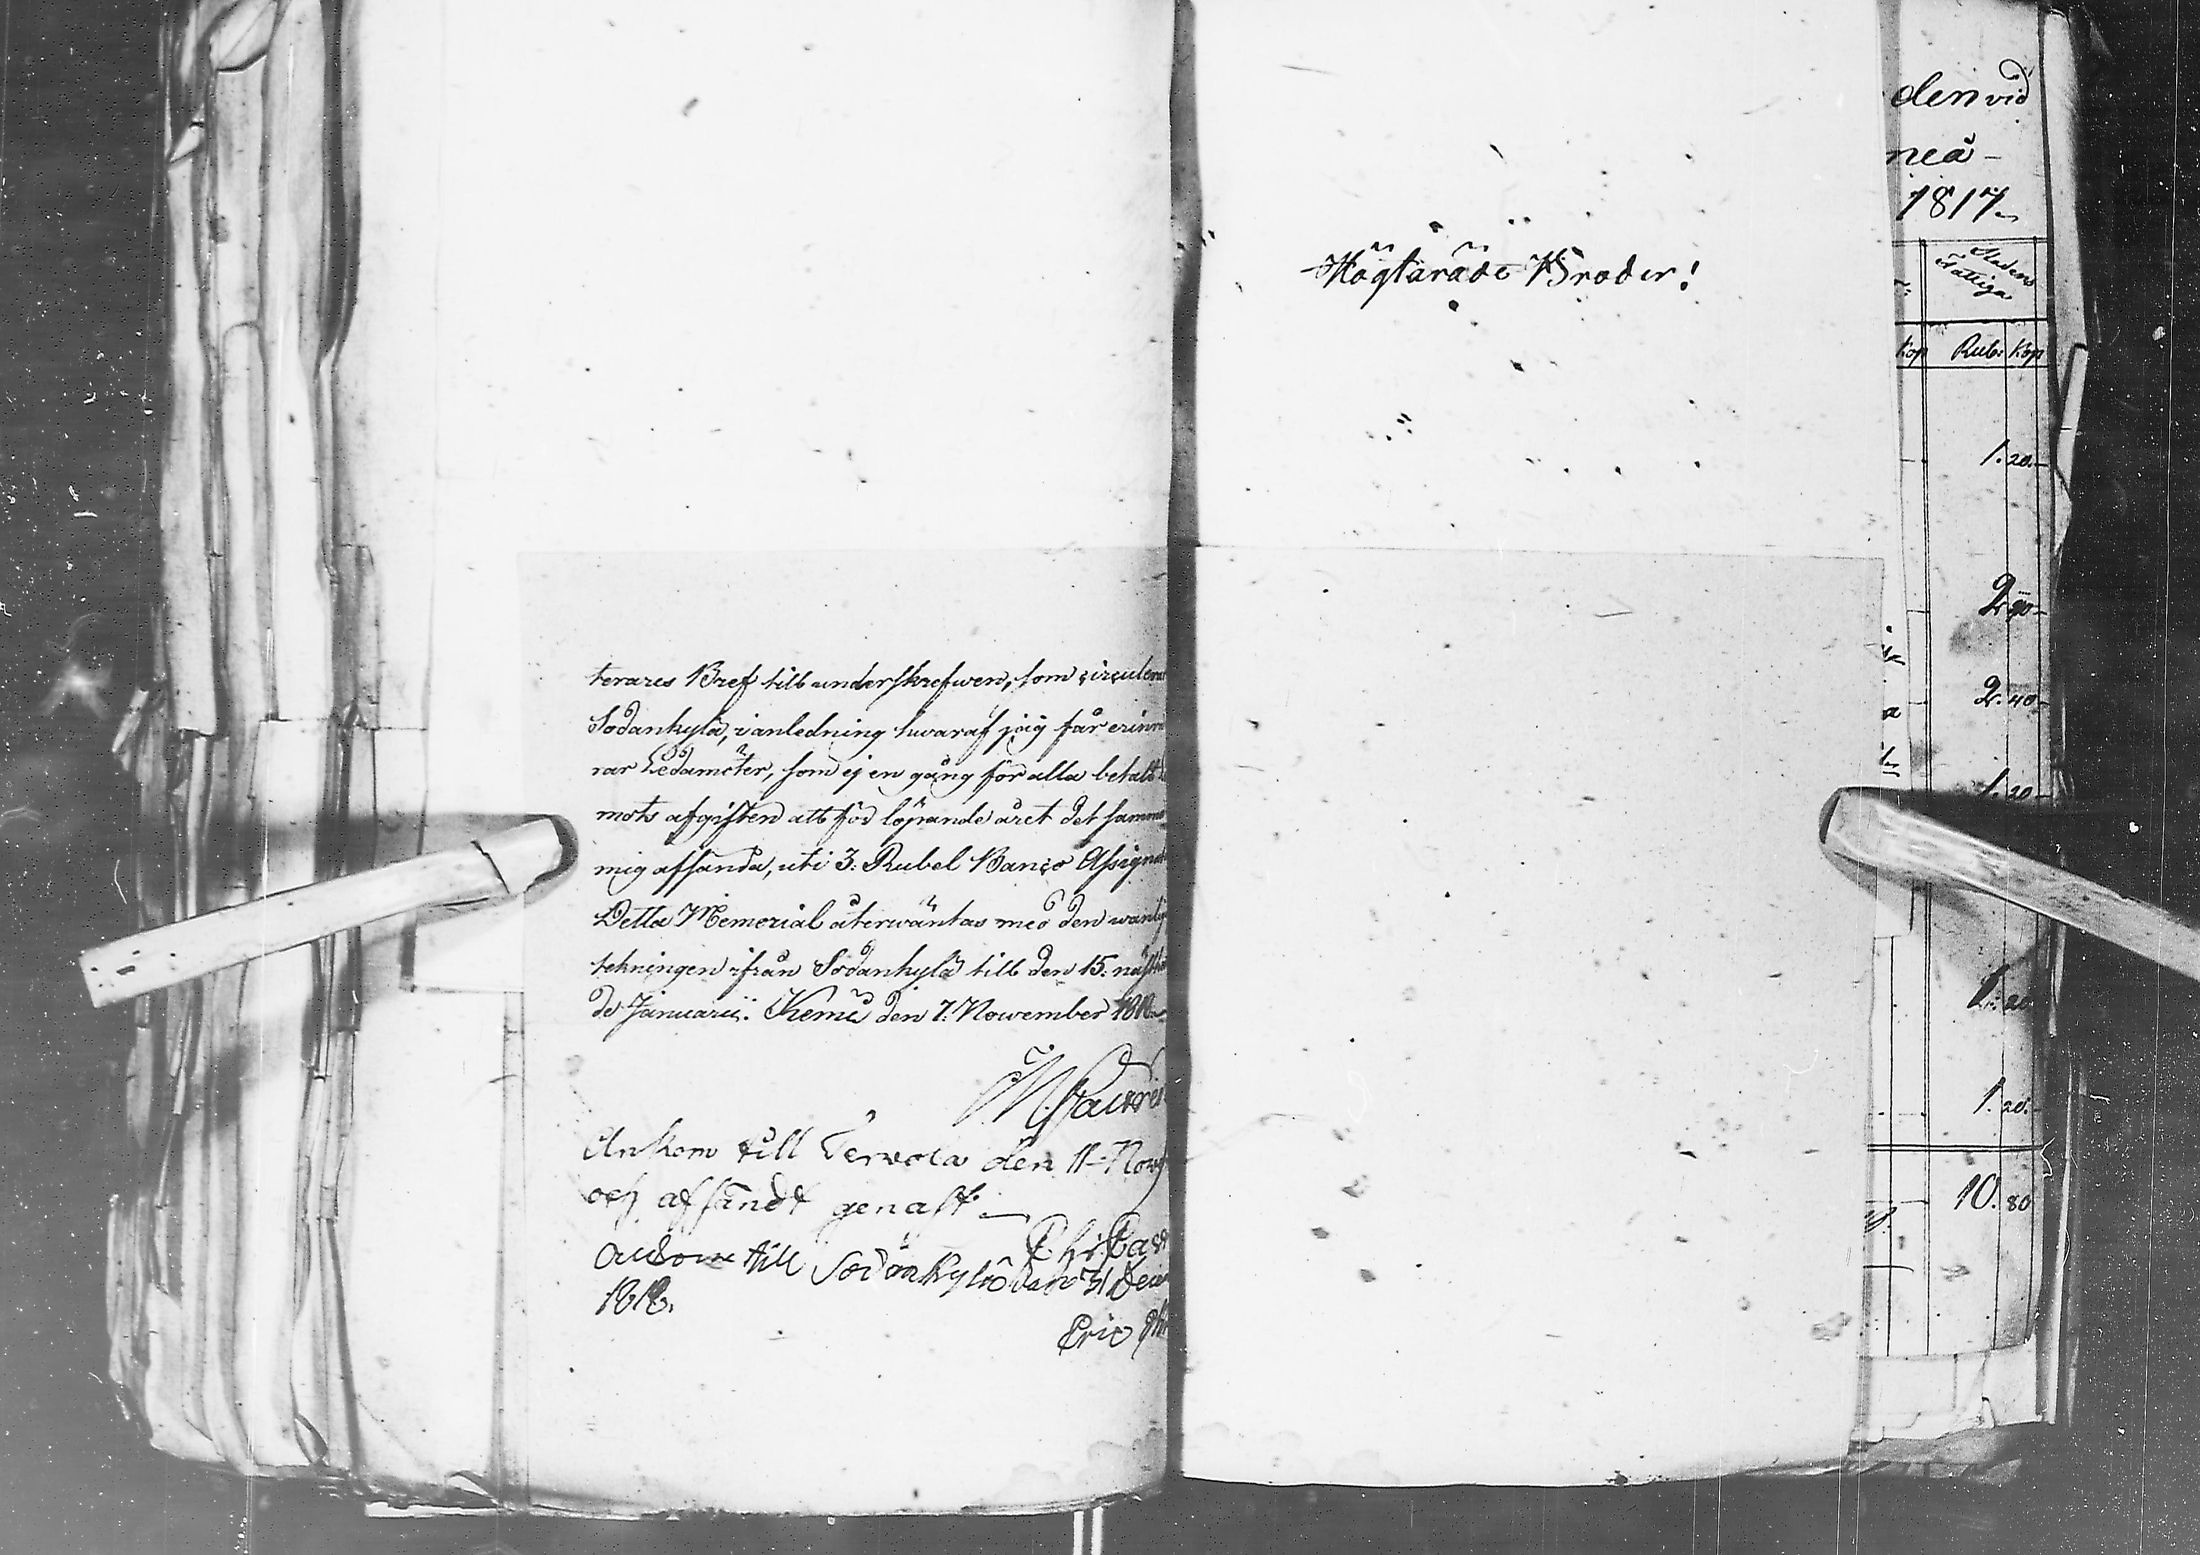 terares Bref till underskrefwen, som circulera
Sodankylä, i anledning hwaraf jag får erinra
rar Ledamöter, som ej en gång för alla betalt
mots afgiften att för löpande året det samma
mig afsända, uti 3: Rubel Banco Assigna
Detta Memorial återwäntas med den wanlig
tekningen ifrån Sodankylä till den 15: näst
de Januarii. Kemi den 7: November 1818
Ankom till Tervola den 11 Nov
och afsändt genast.
Ankom till Sodankylä den 31 Decem
1818.
Eric
Högtärade Bröder!
den vid
neå
1817
Stadens
Fattiga
Kop Rub: Kop
1. 20.
2. 90
2. 40
1. 20
1. 20
1. 20.
10. 80